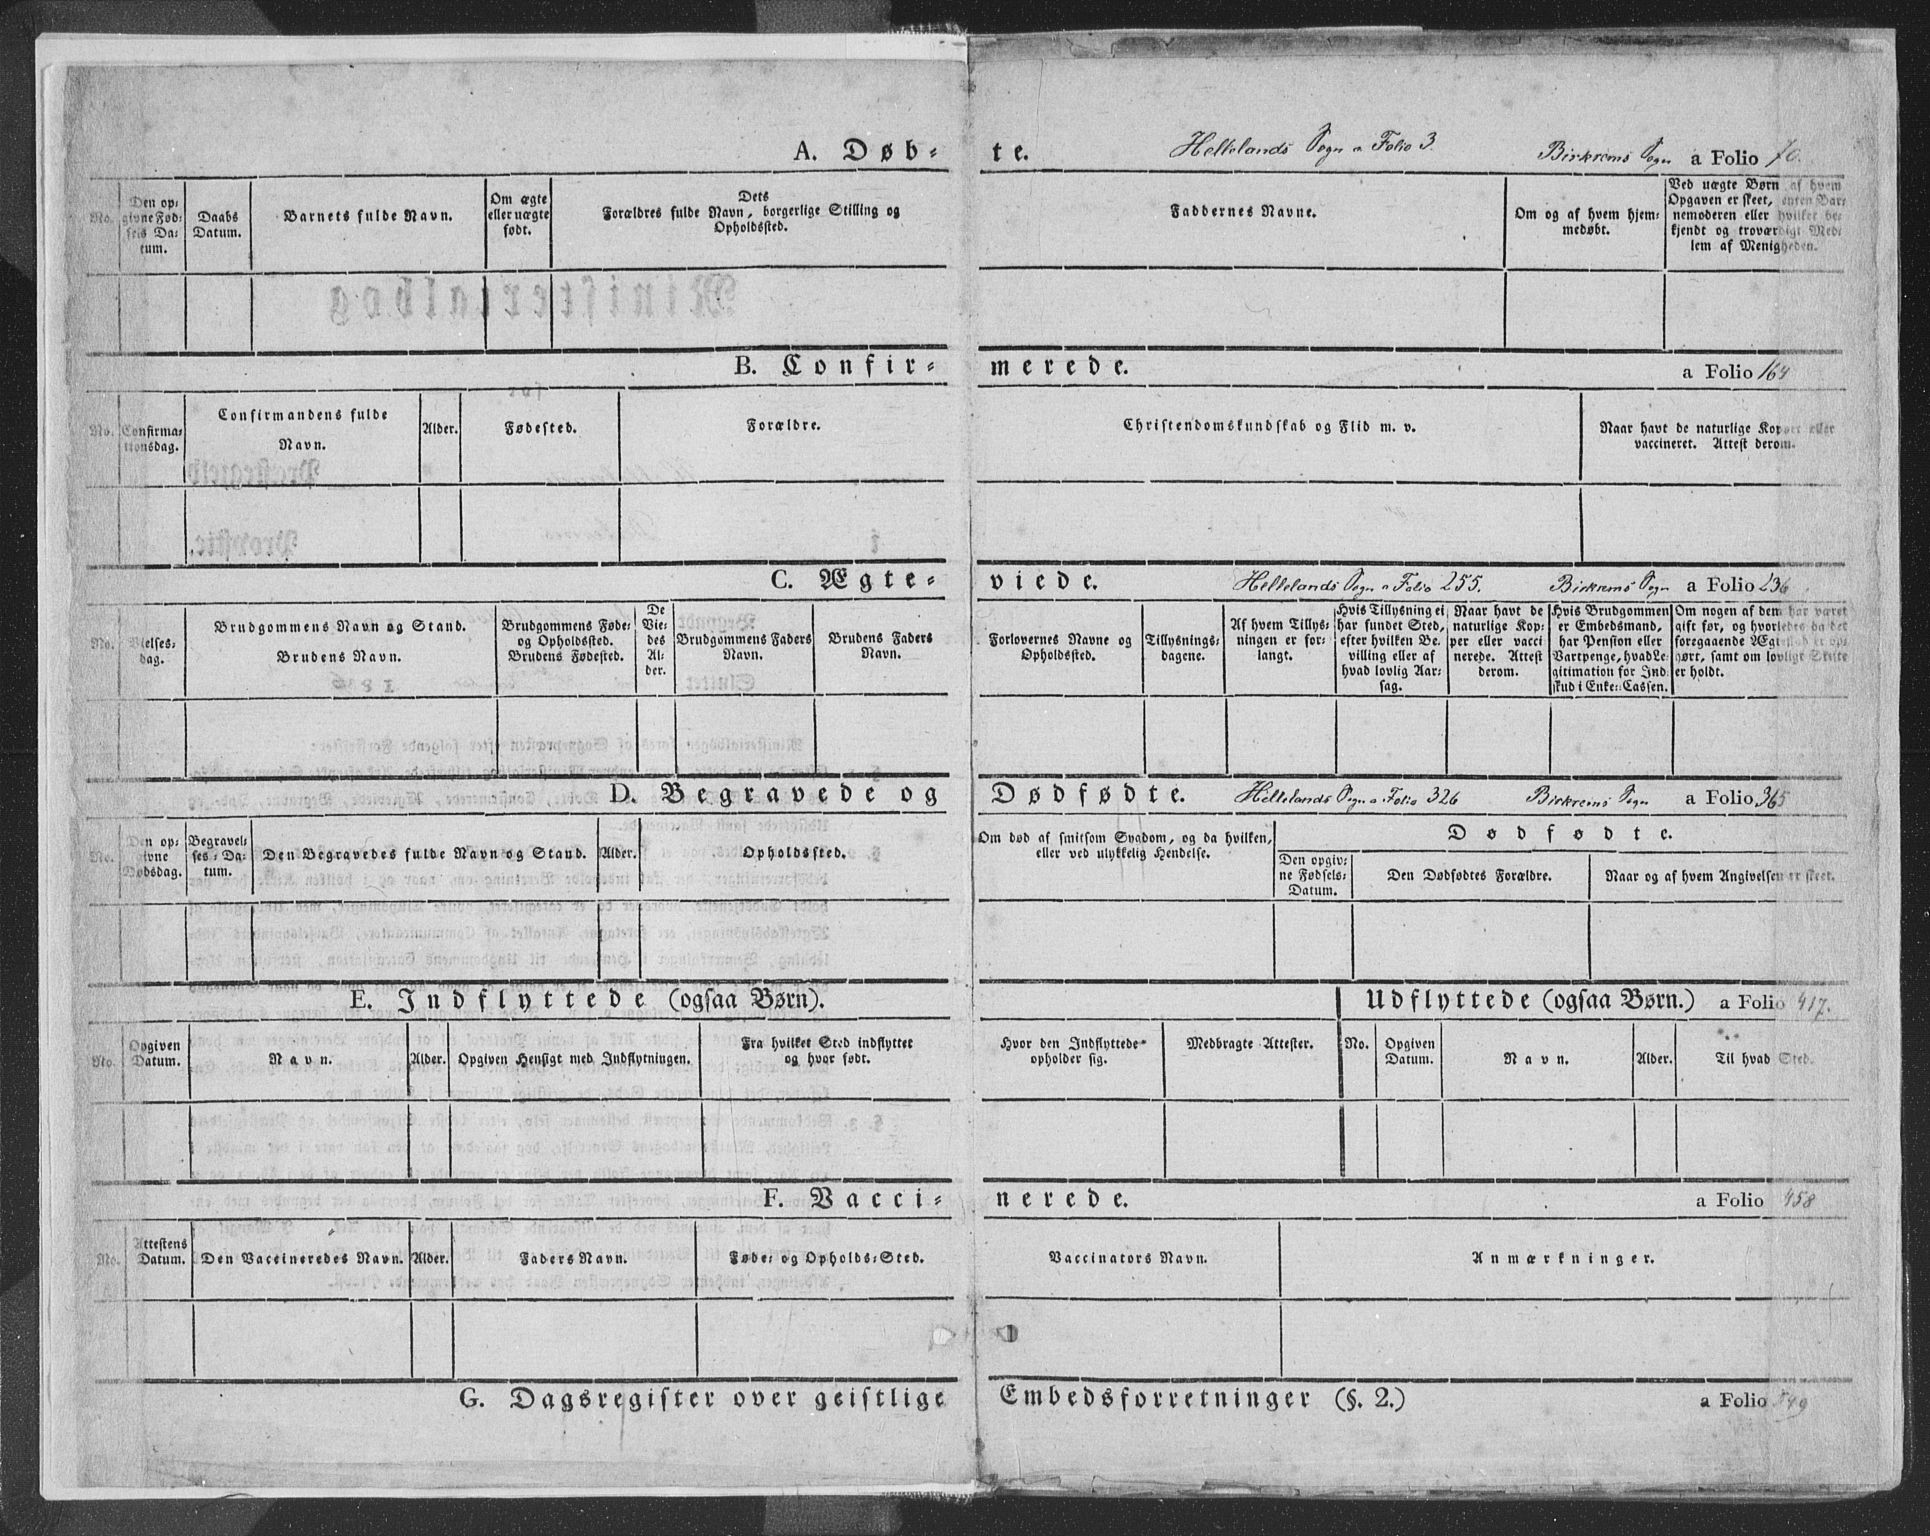 A. Døb- te. Hellelands Sogn a Folio 3. Birkrems Sogn a Folio 70.
No.
Den op-
givne Fød-
sels Da-
tum.
Daabs
Datum.
Barnets fulde Navn.
Om ægte
eller uægte
født.
Dets
Forældres fulde Navn, borgerlige Stilling og
Opholdssted.
Faddernes Navne.
Om og af hvem hjem-
medøbt.
Ved uægte Børn af hvem
Opgaven er skeet, enten Bar-
nemoderen eller hvilket be-
kjendt og troværdigt Med-
lem af Menigheden.
B. Confir- merede. a Folio 164
No.
Confirma-
tionsdag.
Confirmandens fulde
Navn.
Alder.
Fødested.
Forældre.
Christendomskundskab og Flid m. v.
Naar havt de naturlige Kopper eller
vaccineret. Attest derom.
C. Ægte- viede. Hellelands Sogn a Folio 255. Birkrems Sogn a Folio 236
No.
Vielses-
dag.
Brudgommens Navn og Stand.
Brudens Navn.
Brudgommens Føde-
og Opholdssted.
Brudens Fødested.
De
Vie-
des
Al-
der.
Brudgommens Faders
Navn.
Brudens Faders
Navn.
Forlovernes Navne og
Opholdssted.
Tillysnings-
dagene.
Af hvem Tillys-
ningen er for-
langt.
Hvis Tillysning ei
har fundet Sted,
efter hvilken Be-
villing eller af
hvad lovlig Aar-
sag.
Naar havt de
naturlige Kop-
per eller vacci
nerede. Attest
derom.
Hvis Brudgommen
er Embedsmand,
har Pension eller
Vartpenge, hvad Le-
gitimation for Ind-
skud i Enke-Cassen.
Om nogen af dem har været
gift før, og hvorledes da det
foregaaende Ægteskab er op-
hørt, samt om lovligt Skifte
er holdt.
D. Begravede og Dødfødte. Hellelands Sogn a Folio 326 Birkrems Sogn a Folio 365
No.
Den op-
givne
Dødsdag.
Begravel-
ses-Da-
tum.
Den Begravedes fulde Navn og Stand.
Alder.
Opholdssted.
Om død af smitsom Sygdom, og da hvilken,
eller ved ulykkelig Hendelse.
Dødfødte.
Den opgiv-
ne Fødsels-
Datum.
Den Dødfødtes Forældre.
Naar og af hvem Angivelsen er skeet.
E. Indflyttede (ogsaa Børn). Udflyttede (ogsaa Børn.) a Folio 417.
No.
Opgiven
Datum.
Navn.
Alder.
Opgiven Hensigt med Indflytningen.
Fra hvilket Sted indflyttet
og hvor født.
Hvor den Indflyttede
opholder sig.
Medbragte Attester.
No.
Opgiven
Datum.
Navn.
Alder.
Til hvad Sted.
F. Vacci- nerede. a Folio 458
No.
Attestens
Datum.
Den Vaccineredes Navn.
Alder.
Faders Navn.
Føde- og Opholds-Sted.
Vaccinators Navn.
Anmærkninger.
G. Dagsregister over geistlige Embedsforretninger (§. 2.) a Folio 549